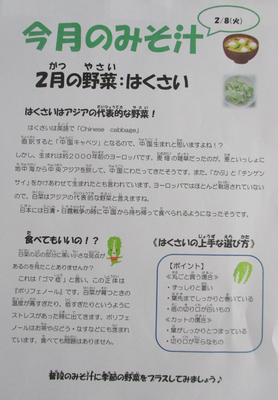 今月のみそ汁
2/8(火)
がつ やさい
2月の野菜:はくさい
はくさいはアジアの代表的な野菜!
はくさいは英語で「Chinese cabbage」
直訳すると「中国キャベツ」となるので、中国生まれと思いますよね!?
しかし、生まれは約2000年前のヨーロッパです。麦畑の雑草だったのが、麦といっしょに
地中海から中央アジアを旅して、中国にわたってきたそうです。また、「かぶ」と「チンゲン
サイ」をかけあわせて生まれたとも言われています。ヨーロッパではほとんど栽培されていない
ので、白菜はアジアの代表的な野菜と言えますね。
日本には日清・日露戦争の時に中国から持ち帰って食べられるようになったそうです。
食べてもいいの!?
白菜の芯の部分に黒い小さな斑点が
あるのを見たことありませんか?
これは「ゴマ症」と言い、この正体は
「ポリフェノール」です。白菜が育つときの
温度が高すぎたり、低すぎたりというように
ストレスがあった時に出てきます。ポリフェ
ノールはお茶やぶどう・なすなどにも含まれ
ています。食べても問題はありません。
《はくさいの上手な選び方》
【ポイント】
≪丸ごと買う場合≫
・ずっしりと重い
・葉先までしっかりと巻いている
・根の切り口が白いもの
≪カットの場合≫
・葉がしっかりとつまっている
・切り口が平らなもの
普段のみそ汁に季節の野菜をプラスしてみましょう♪